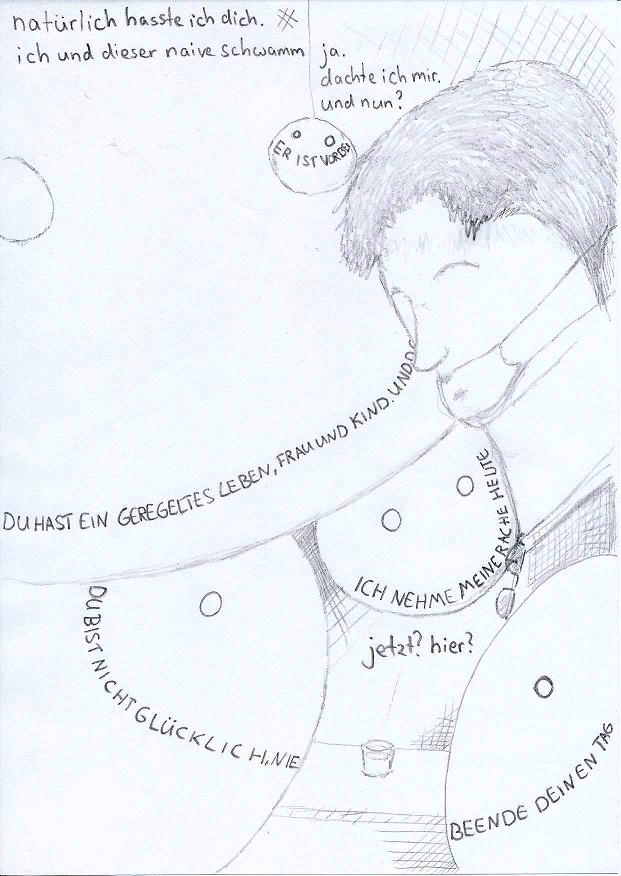 natürlich hasste ich dich.
ich und dieser naive schwamm
ja.
dachte ich mir.
und nun?
ER IST VORBEI
DU HAST EIN GEREGELTES LEBEN, FRAU UND KIND. UND
ICH NEHME MEINE RACHE HEUTE
DU BIST NICHT GLÜCKLICH. NIE
jetzt? hier?
BEENDE DEINEN TAG